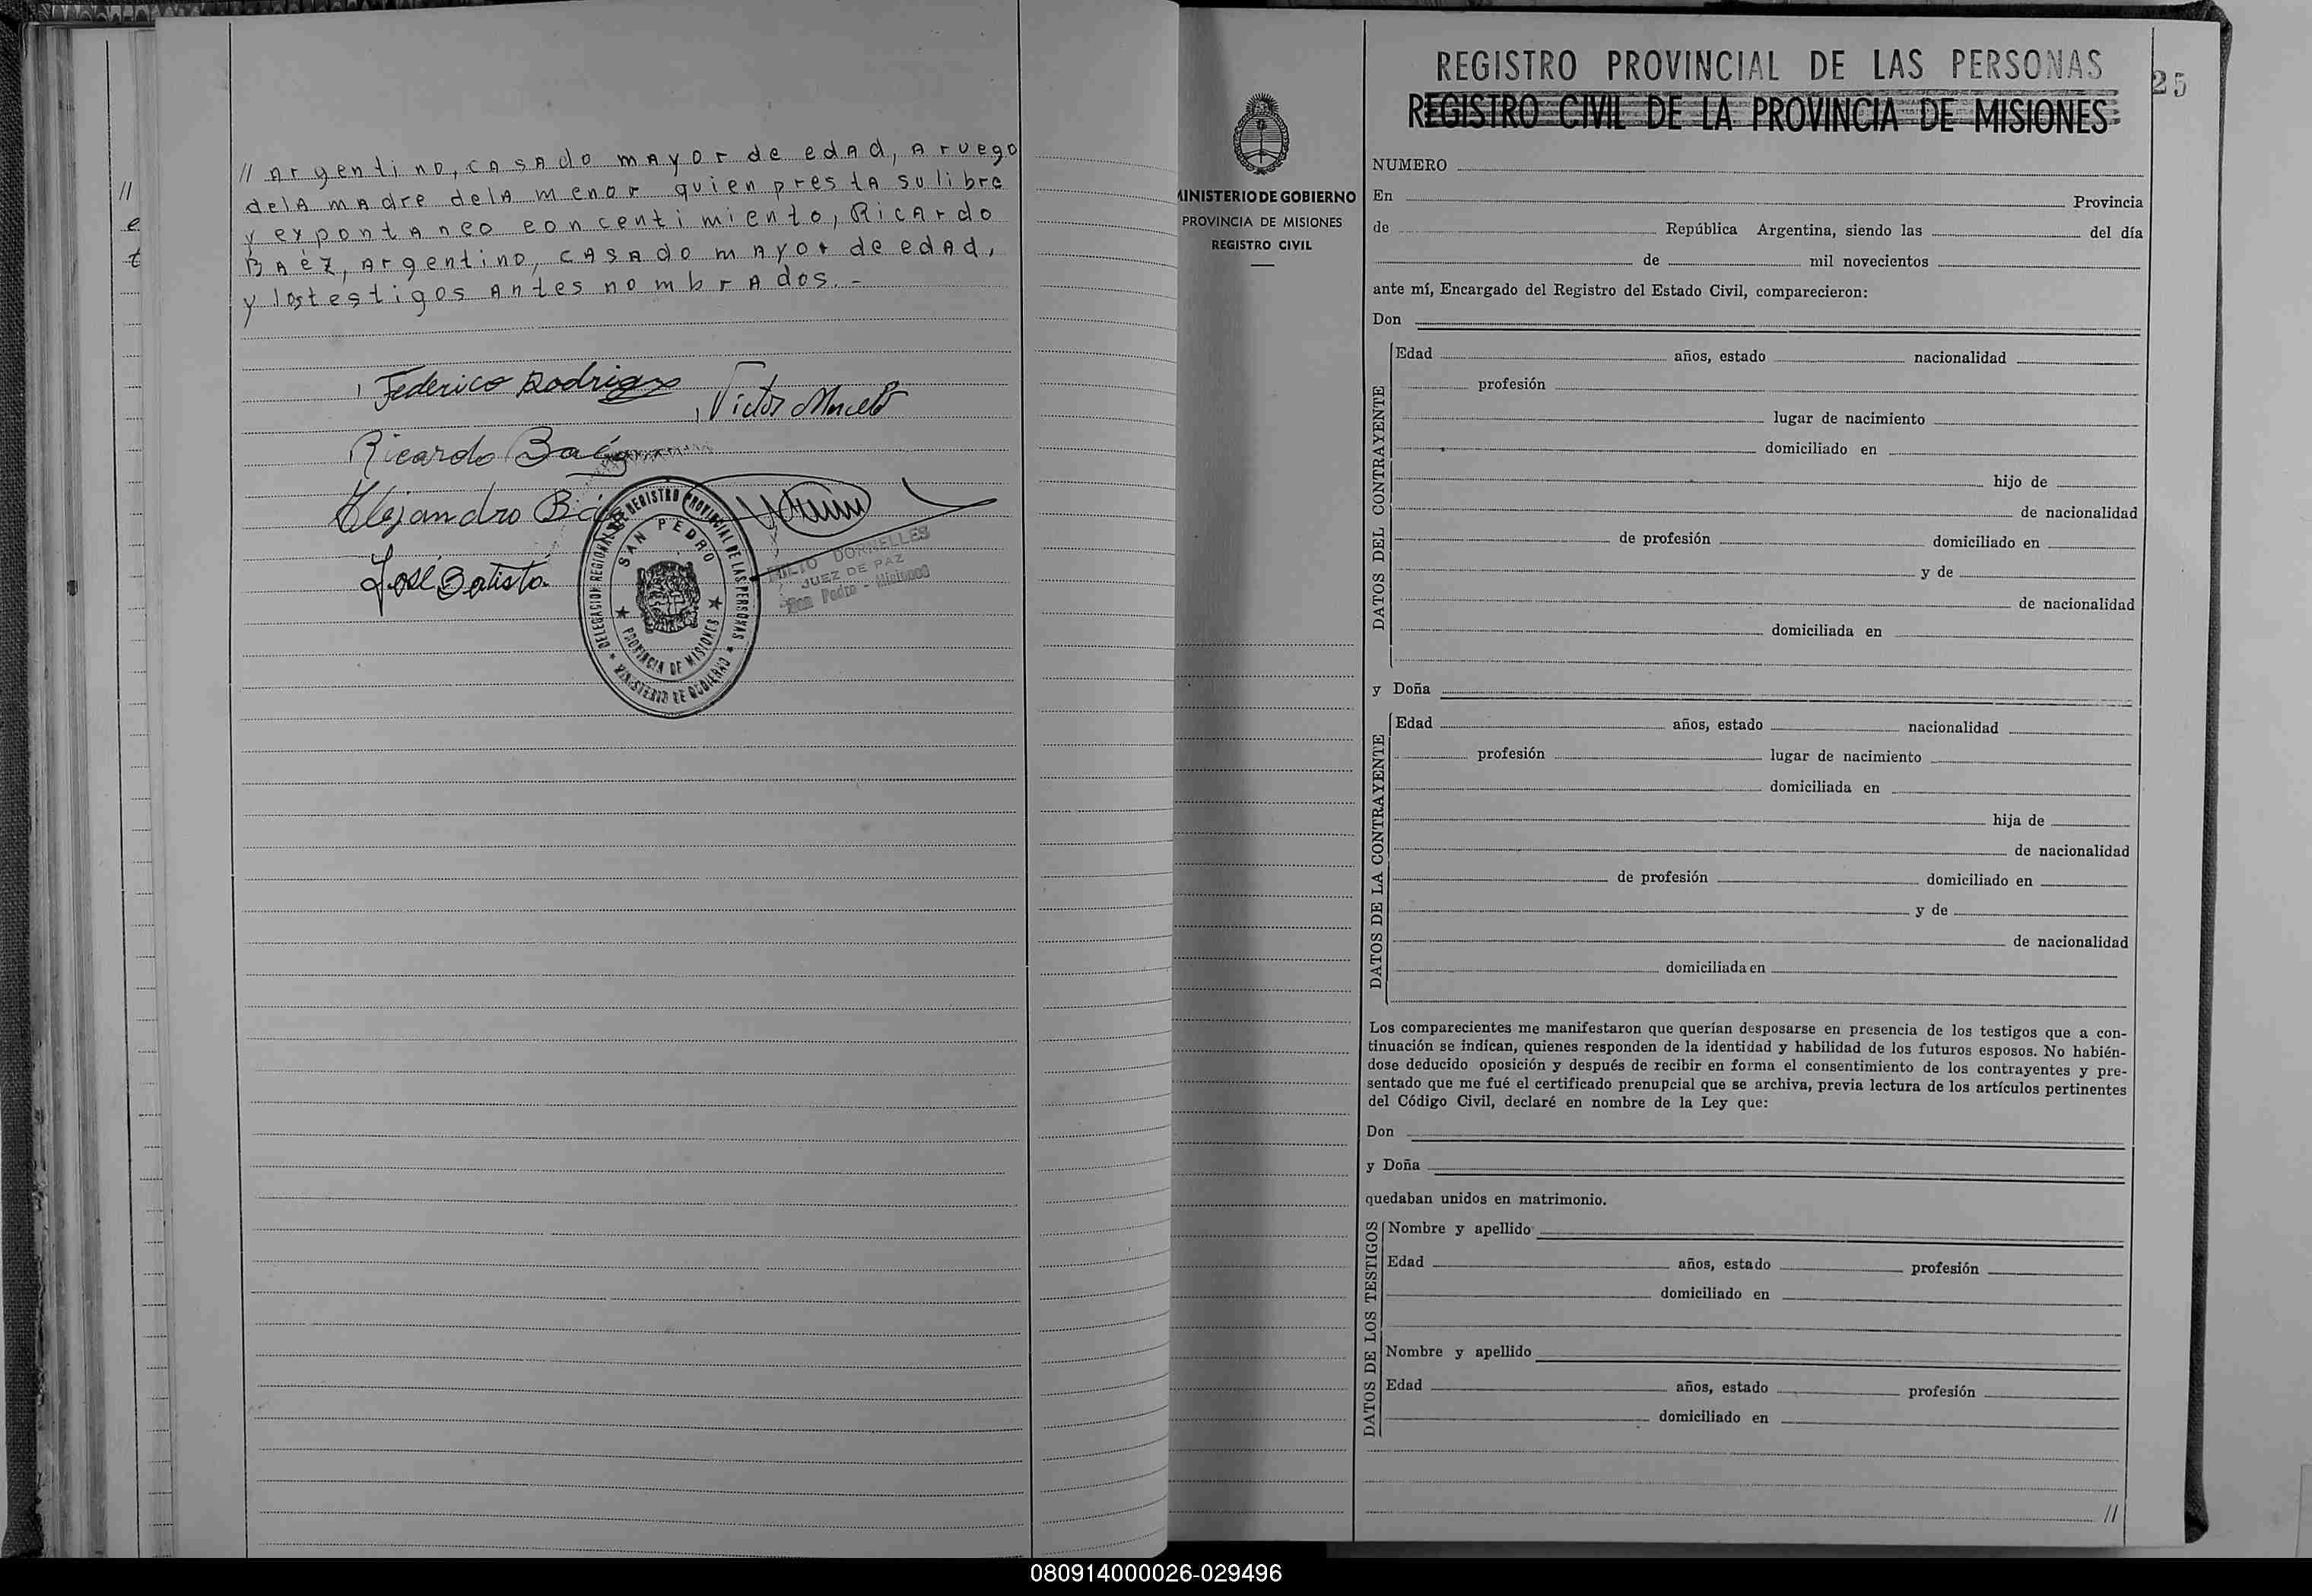 //
e
t
// Argentino, casado mayor de edad, a ruego
dela madre dela menor quien presta su libre
y expontaneo concentimiento, Ricardo
Baéz, Argentino, casado mayor de edad,
y los testigos antes nombrados.-
Federico Rodriguez
Victor Marcelo
Ricardo Baéz
Alejandro Báez
José Batista
DELEGACION REGIONAL DEL REGISTRO PROVINCIAL DE LAS PERSONAS
SAN PEDRO
PROVINCIA DE MISIONES
MINISTERIO DE GOBIERNO
DORNELLES
JUEZ DE PAZ
San Pedro - Misiones
MINISTERIO DE GOBIERNO
PROVINCIA DE MISIONES
REGISTRO CIVIL
REGISTRO PROVINCIAL DE LAS PERSONAS
REGISTRO CIVIL DE LA PROVINCIA DE MISIONES
25
NUMERO
En Provincia
de República Argentina, siendo las del día
de mil novecientos
ante mí, Encargado del Registro del Estado Civil, comparecieron:
Don
DATOS DEL CONTRAYENTE
Edad años, estado nacionalidad
profesión
lugar de nacimiento
domiciliado en
hijo de
de nacionalidad
de profesión domiciliado en
y de
de nacionalidad
domiciliada en
y Doña
DATOS DE LA CONTRAYENTE
Edad años, estado nacionalidad
profesión lugar de nacimiento
domiciliada en
hija de
de nacionalidad
de profesión domiciliado en
y de
de nacionalidad
domiciliada en
Los comparecientes me manifestaron que querían desposarse en presencia de los testigos que a con-
tinuación se indican, quienes responden de la identidad y habilidad de los futuros esposos. No habién-
dose deducido oposición y después de recibir en forma el consentimiento de los contrayentes y pre-
sentado que me fué el certificado prenupcial que se archiva, previa lectura de los artículos pertinentes
del Código Civil, declaré en nombre de la Ley que:
Don
y Doña
quedaban unidos en matrimonio.
DATOS DE LOS TESTIGOS
Nombre y apellido
Edad años, estado profesión
domiciliado en
Nombre y apellido
Edad años, estado profesión
domiciliado en
//
080914000026-029496